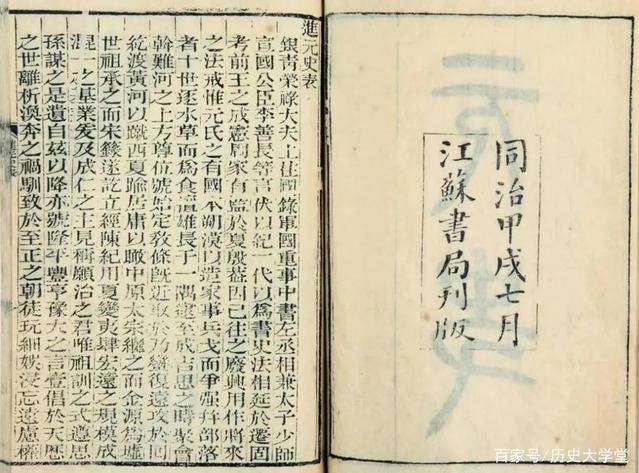 同治甲戌七月
江蘇書局刊版
進元史表
銀青榮祿大夫上柱國錄軍國重事中書左丞相兼太子少師
宣國公臣李善長等言伏以紀一代以爲書史法相延於遷固
考前王之成憲周家有監於夏殷葢因已往之廢興用作將來
之法戒惟元氏之有國本朔漠以造家事兵戈而爭强幷部落
者十世逐水草而爲食擅雄長于一隅逮至成吉思之時聚會
斡難河之上方尊位號始定敎條旣近取於乃蠻復遠攻於回
紇渡黃河以蹴西夏踰居庸以瞰中原太宗繼之而金源爲墟
世祖承之而宋籙遂訖立經陳紀用夏變夷肆宏遠之規模成
混一之基業爰及成仁之主見稱願治之君唯祖訓之式遵思
孫謀之是遺自兹以降亦號隆平豐亨豫大之言壹倡於天曆
之世離析渙奔之禍馴致於至正之朝徒玩細娛浸忘遠慮權
百家号/历史大学堂